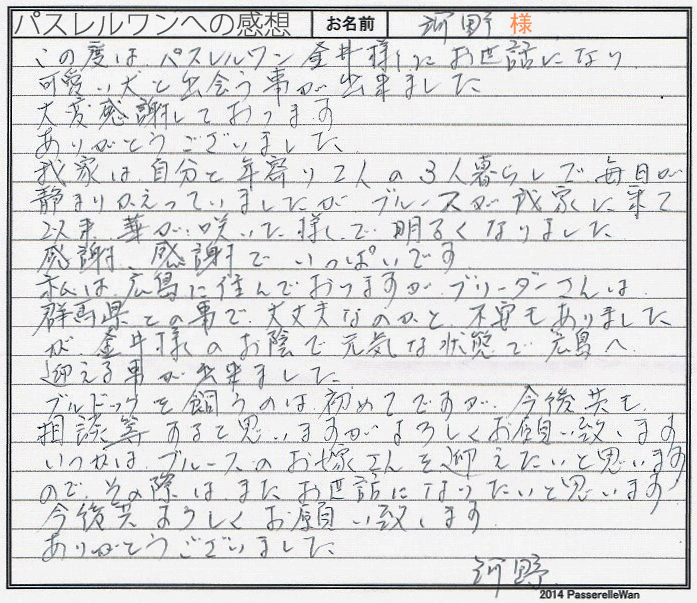 パスレルワンへの感想 お名前 河野 様
この度は、パスレルワン 金井様にお世話になり
可愛い犬と出会う事が出来ました
大変感謝しております
ありがとうございました
我家は自分と年寄り2人の3人暮らしで毎日が
静まりかえっていましたが ブルースが我家に来て
以来、華が咲いた様で明るくなりました
感謝、感謝でいっぱいです
私は、広島に住んでおりますが、ブリーダーさんは、
群馬県との事で、大丈夫なのかと、不安もありました
が、金井様のお陰で元気な状態で広島へ
迎える事が出来ました
ブルドックを飼うのは初めてですが、今後共も、
相談等あると思いますがよろしくお願い致します
いつかは、ブルースのお嫁さんを迎えたいと思います
ので、その際は、またお世話になりたいと思います
今後共よろしくお願い致します
ありがとうございました
河野
2014 PasserelleWan